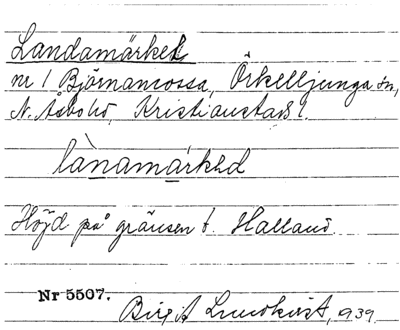 Landamärket
nr 1 Björnamossa, Örkelljunga sn,
N. Åsbo hd, Kristianstads l.
lànamärkəd
Höjd på gränsen t. Halland.
Nr 5507.
Birgit Lundkvist, 1939